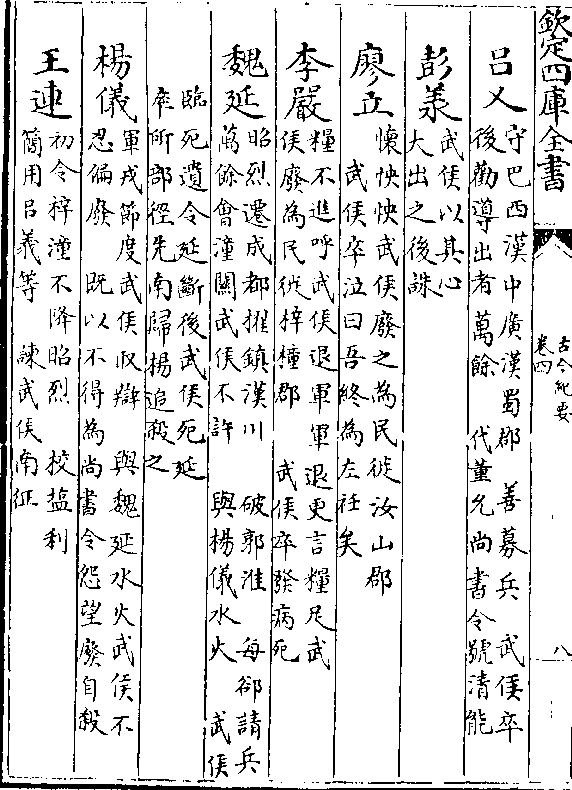 欽定四庫全書
古今紀要
卷四
八
呂乂
守巴西漢中廣漢蜀郡　善募兵　武侯卒
後勸導出者萬餘　代董允尚書令號清能
彭羕
武侯以其心
大出之後誅
廖立
懷怏怏武侯廢之為民徙汝山郡
武侯卒泣曰吾終為左衽矣
李嚴
糧不進呼武侯退軍軍退更言糧足武
侯廢為民徙梓橦郡　武侯卒發病死
魏延
昭烈遷成都擢鎮漢川　破郭淮　每郤請兵
萬餘會潼關武侯不許　與楊儀水火　武侯
臨死遺令延斷後武侯死延
率所部徑先南歸楊追殺之
楊儀
軍戎節度武侯収辯　與魏延水火武侯不
忍偏廢　既以不得為尚書令怨望廢自殺
王連
初令梓潼不降昭烈　校塩利
簡用呂義等　諫武侯南征